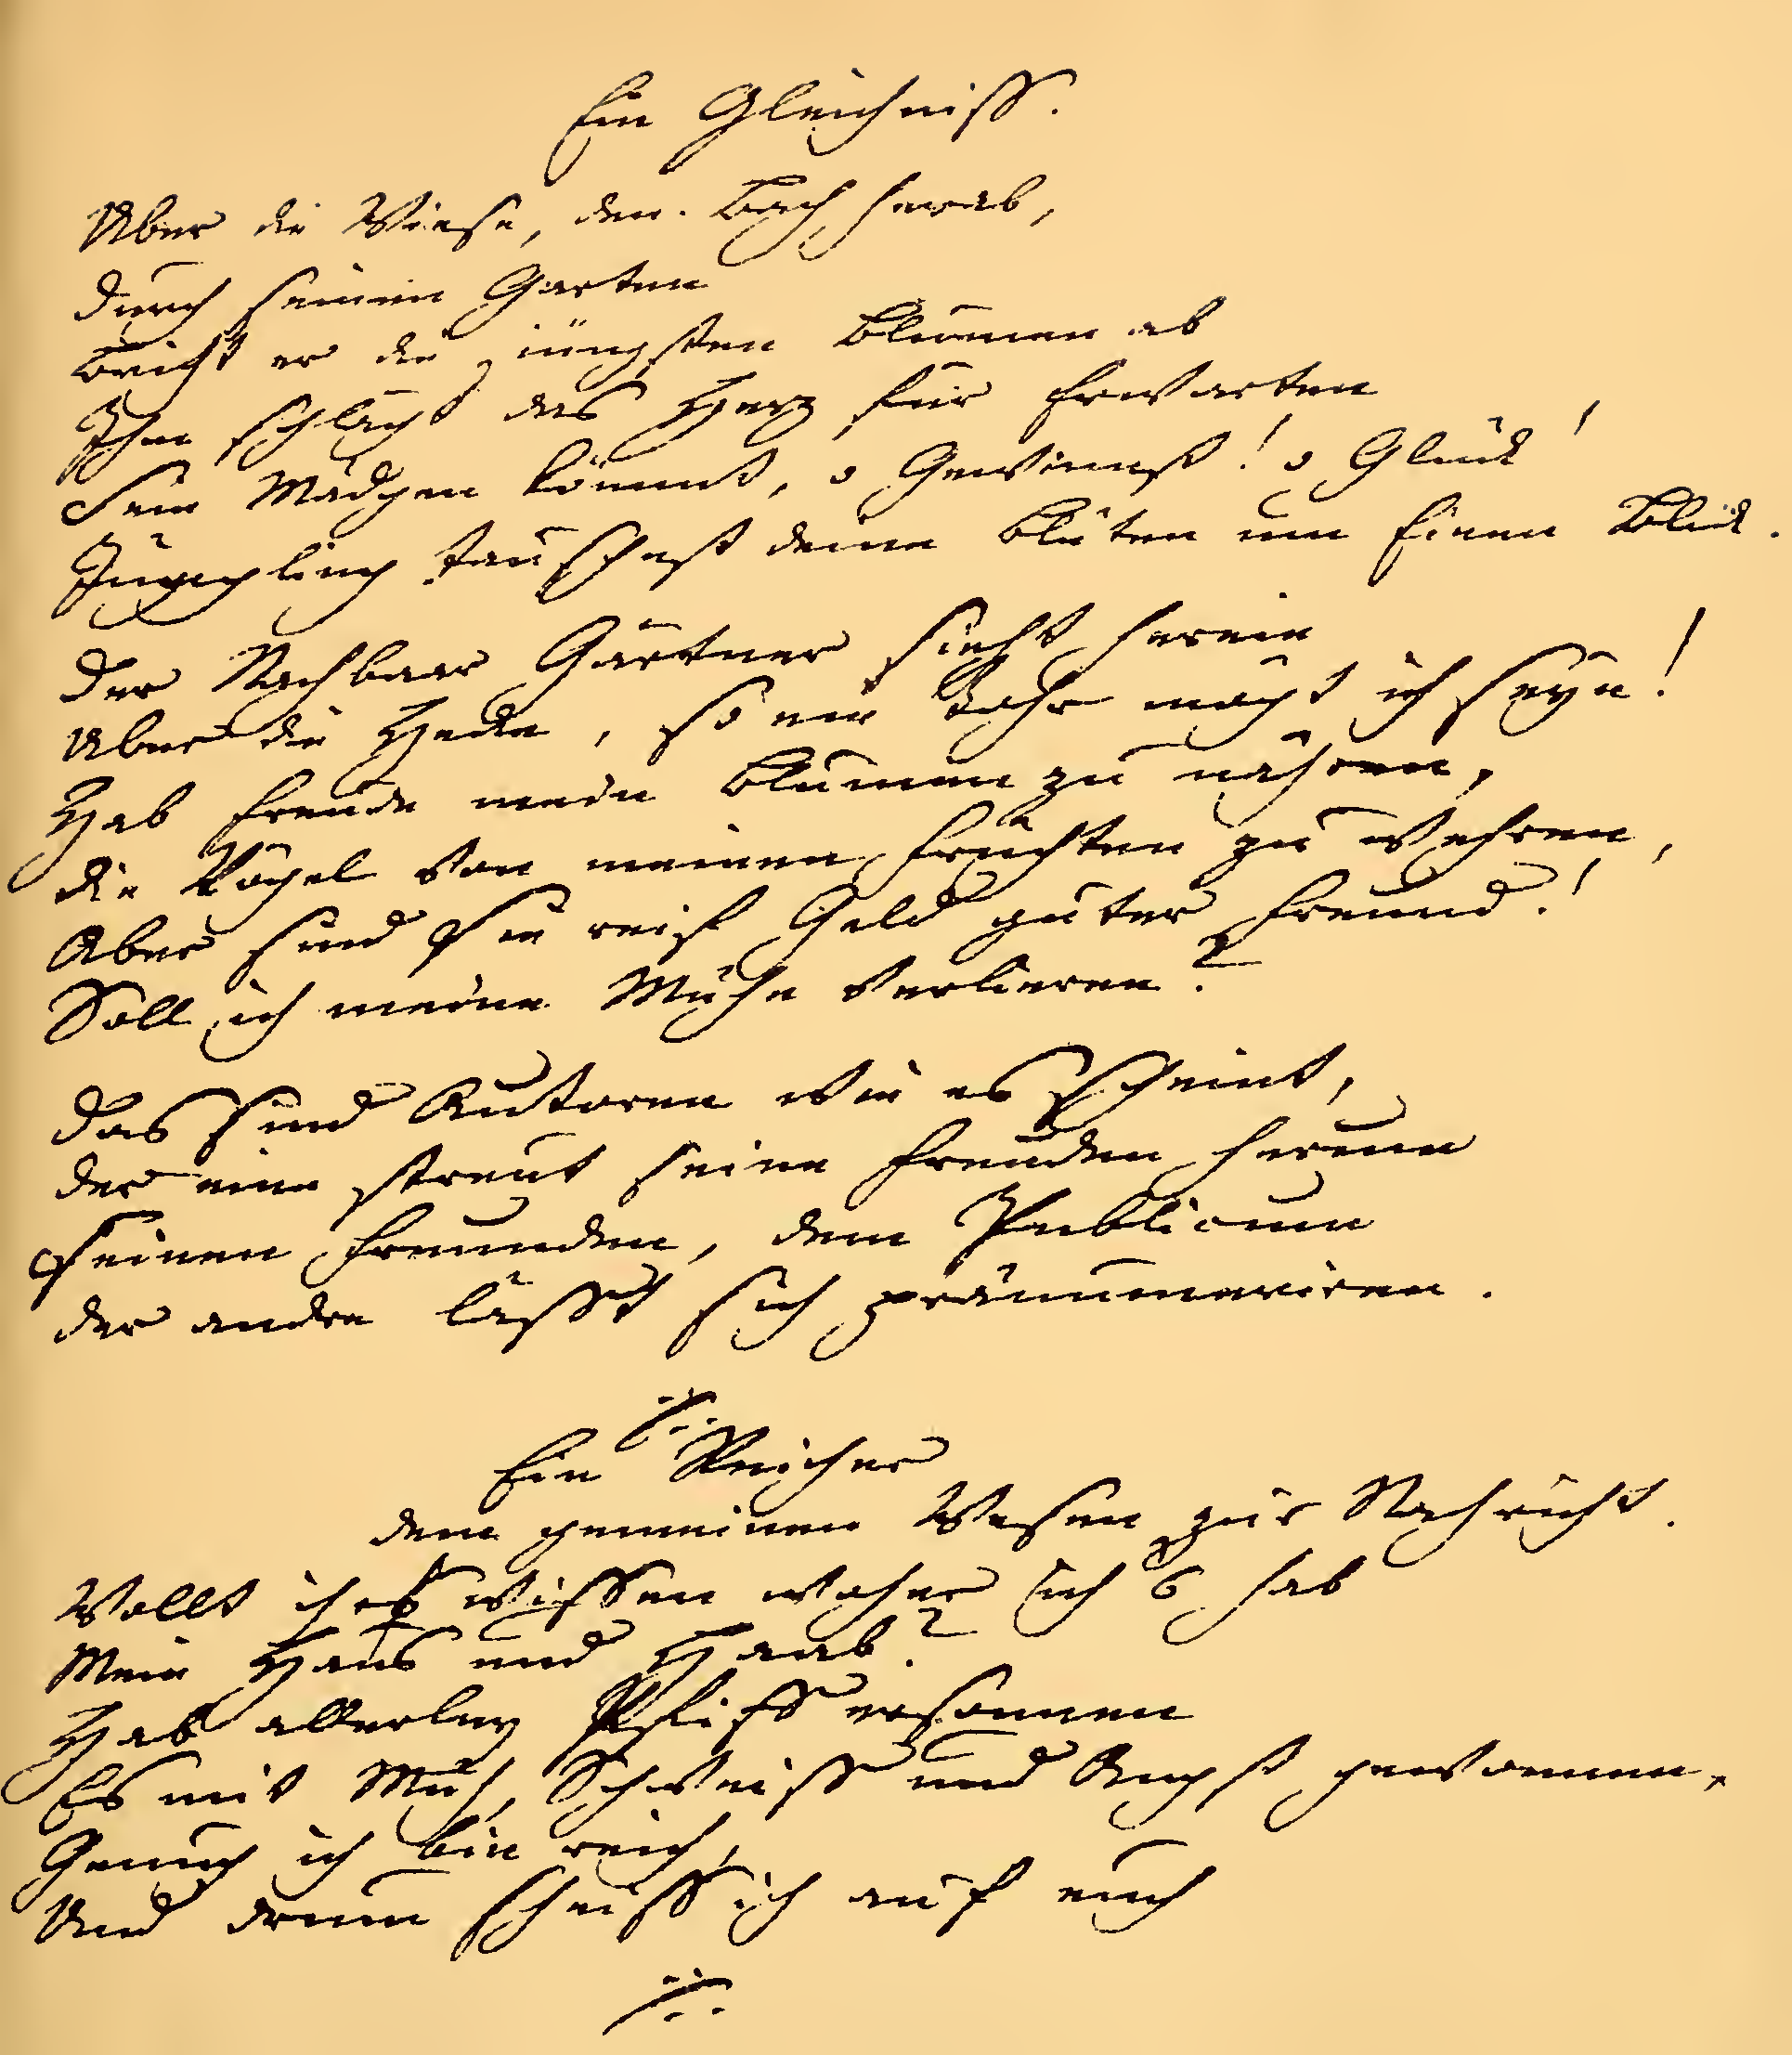 Ein Gleichniss.
Uber die Wiese, den Bach herab,
Durch seinen Garten
Bricht er die jüngsten Blumen ab
Ihm schlägt das Herz für Erwarten
Sein Mädgen kömmt, o Gewinnst! o Glück!
Jüngling tauschest deine Blüten um Einen Blick.
Der Nachbaar Gärtner sieht herein
Uber die Hecke, so ein Tohr mögt ich seyn!
Hab Freude mein Blumen zu nähren,
die Vögel von meinen Früchten zu wehren,
Aber sind sie reif Geld guter Freund!
Soll ich meine Mühe verlieren?
Das sind Autoren wie es scheint,
der eine streut seine Freuden herum
seinen Freunden, dem Publicum
der andre lässt sich pränumeriren.
Ein Reicher
dem gemeinen Wesen zur Nachricht.
Wollt ihr wissen woher ich's hab
Mein Haus und Haab?
Hab allerley Pfiff ersonnen
Es mit Müh, Schweiss und Angst gewonnen,
Genug ich bin reich,
Und drum scheiss ich auf euch